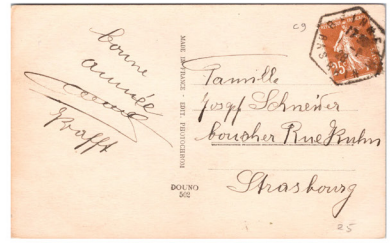 bonne
année
Krafft
MADE IN FRANCE - EDIT. PHOTOCHROM
DOUNO
502
C9
Famille
Josef Schneider
boucher Rue Kuhn
Strasbourg
25